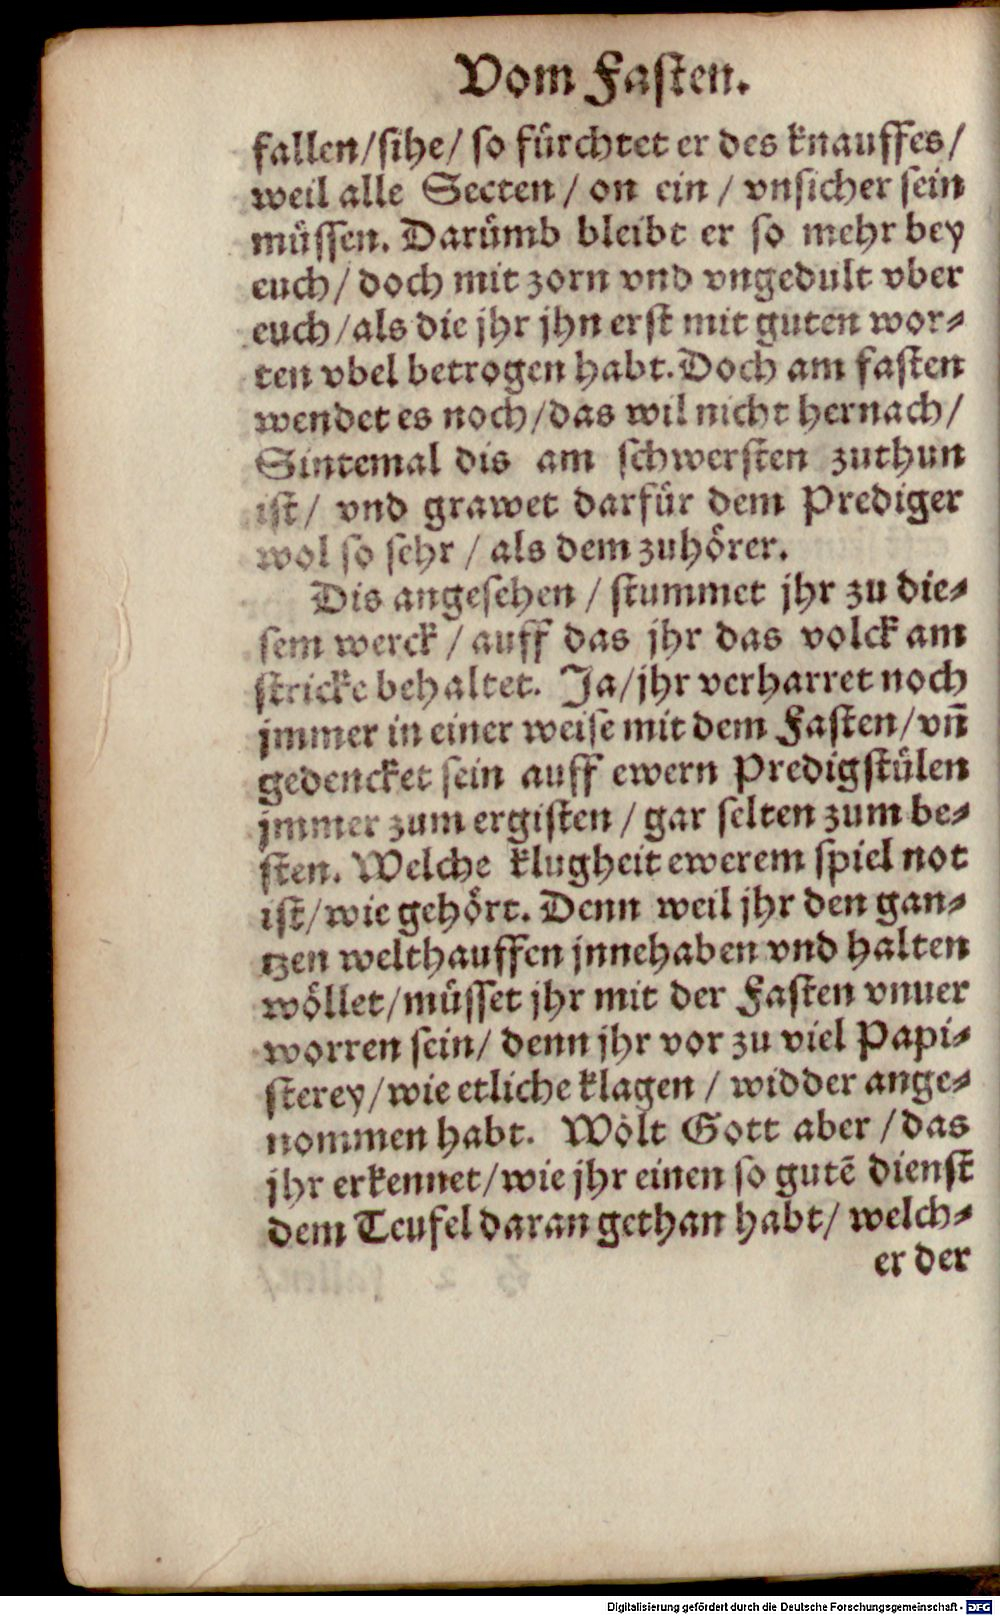 Vom Fasten.
fallen/sihe/ so fürchtet er des knauffes/
weil alle Secten / on ein / vnsicher sein
müssen. Darümb bleibt er so mehr bey
euch/ doch mit zorn vnd vngedult vber
euch/als die jhr jhn erst mit guten wor-
ten vbel betrogen habt. Doch am fasten
wendet es noch/das wil nicht hernach/
Sintemal dis am schwersten zuthun
ist/ vnd grawet darfür dem Prediger
wol so sehr / als dem zuhörer.
Dis angesehen / stummet jhr zu die-
sem werck / auff das jhr das volck am
stricke behaltet. Ja/jhr verharret noch
jmmer in einer weise mit dem Fasten/ vn̄
gedencket sein auff ewern Predigstülen
jmmer zum ergisten / gar selten zum be-
sten. Welche klugheit ewerem spiel not
ist/wie gehört. Denn weil jhr den gan-
tzen welthauffen jnnehaben vnd halten
wöllet/müsset jhr mit der Fasten vnuer
worren sein/ denn jhr vor zu viel Papi-
sterey/wie etliche klagen / widder ange-
nommen habt. Wölt Gott aber /das
jhr erkennet/wie jhr einen so gutē dienst
dem Teufel daran gethan habt/ welch-
er der
Digitalisierung gefördert durch die Deutsche Forschungsgemeinschaft - DFG